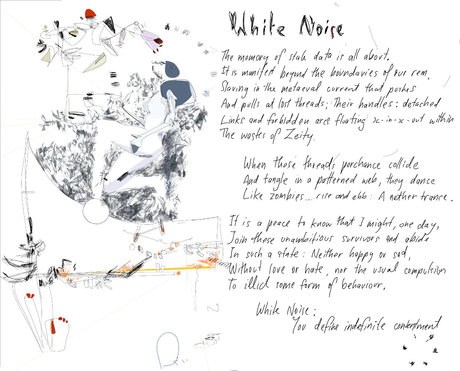 White Noise
The memory of stale data is all about.
It is manifest beyond the boundaries of our rem.
Slaving in the metaeval current that pushes
And pulls at lost threads; Their handles: detached
Links and forbidden arcs floating x-in-x-out within
The wastes of Zeity.
When those threads perchance collide
And tangle in a patterned web, they dance
Like zombies... rise and ebb: A nother trance.
It is a peace to know that I might, one day,
Join those unambitious survivors and abide
In such a state: Neither happy or sad,
Without love or hate, nor the usual compulsion
To illicit some form of behaviour.
White Noise:
You define indefinite contentment